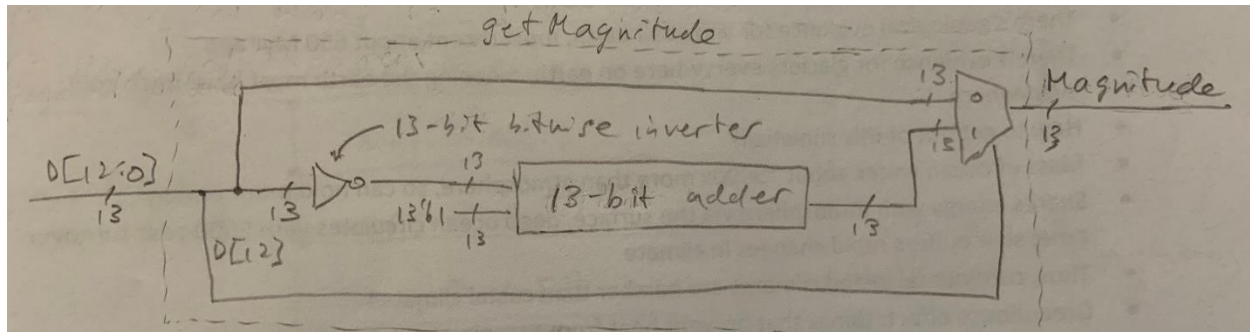 getMagnitude
13
Magnitude
0
13-bit bitwise inverter
1
13
13
D[12:0]
13
13
13
13-bit adder
13'b1
13
13
D[12]